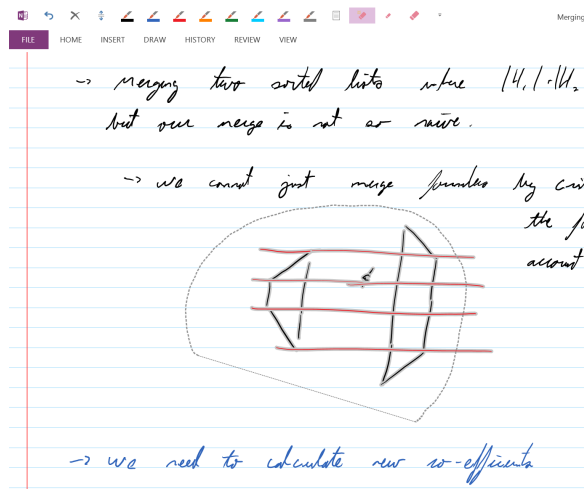 Merging
FILE HOME INSERT DRAW HISTORY REVIEW VIEW
-> Merging two sorted lists where |H,|·|H₂
but our merge is not so naive.
-> we cannot just merge by
the
account
-> we need to calculate new co-efficients